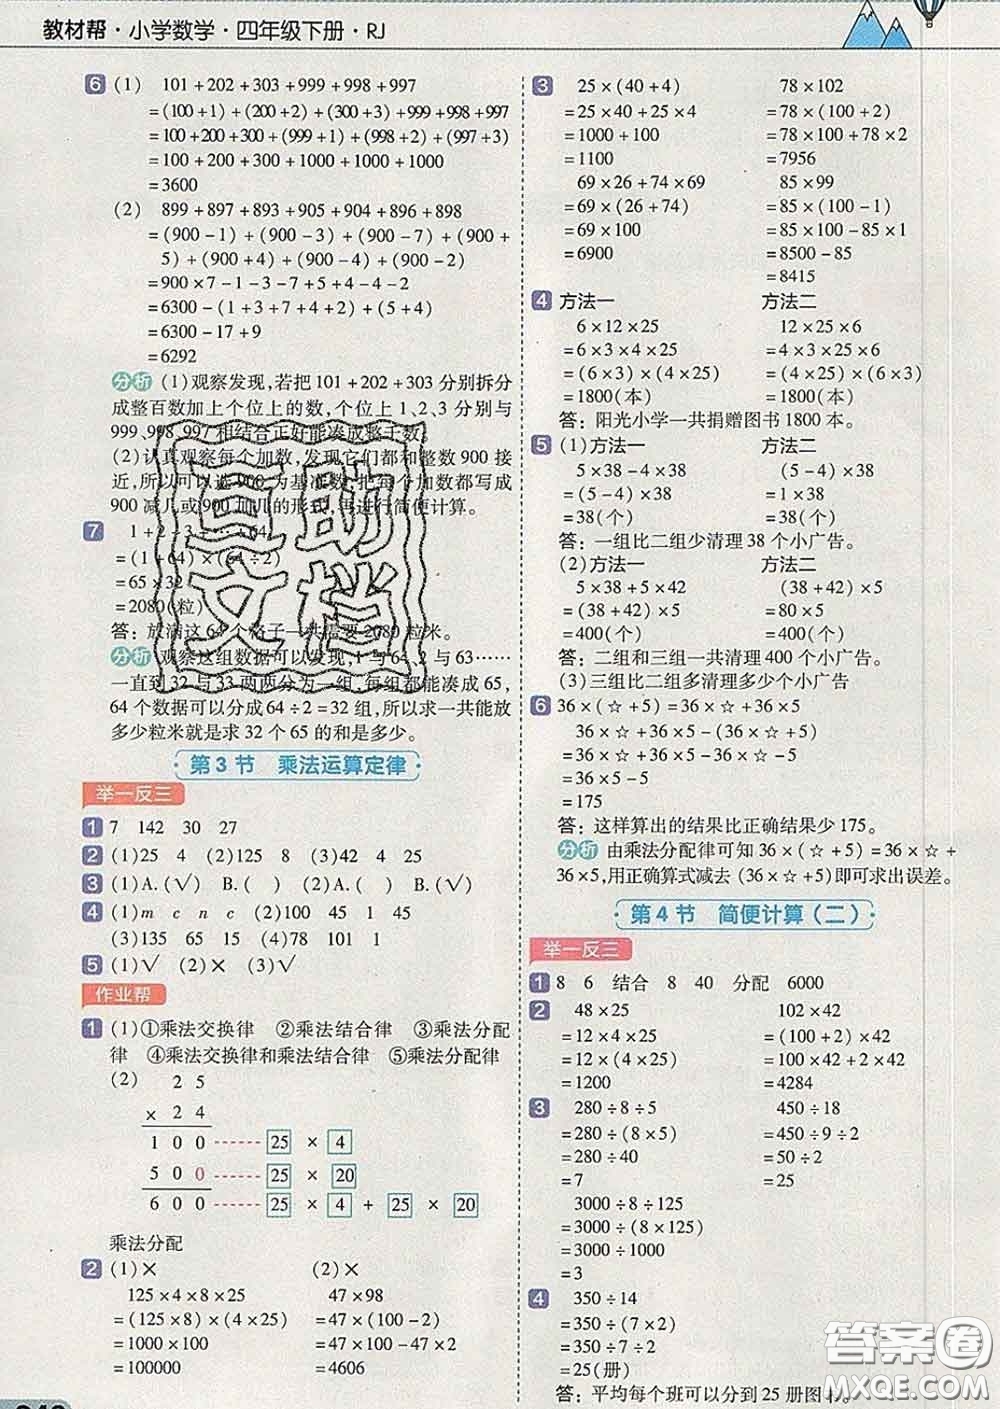 教材帮·小学数学·四年级下册·RJ
6 (1) 101+202+303+999+998+997
=(100+1)+(200+2)+(300+3)+999+998+997
=100+200+300+(999+1)+(998+2)+(997+3)
=100+200+300+1000+1000+1000
=3600
(2) 899+897+893+905+904+896+898
=(900-1)+(900-3)+(900-7)+(900+
5)+(900+4)+(900-4)+(900-2)
=900×7-1-3-7+5+4-4-2
=6300-(1+3+7+4+2)+(5+4)
=6300-17+9
=6292
分析 (1)观察发现,若把101+202+303分别拆分
成整百数加上个位上的数,个位上1、2、3分别与
999、998、997相结合正好能凑成整千数。
(2)认真观察每个加数,发现它们都和整数900接
近,所以可以选900为基准数,把每个加数都写成
900减几或900加几的形式,再进行简便计算。
7 1+2+3+…+64
=(1+64)×(64÷2)
=65×32
=2080(粒)
答:放满这64个格子一共需要2080粒米。
分析 观察这组数据可以发现,1与64,2与63……
一直到32与33两两分为一组,每组都能凑成65,
64个数据可以分成64÷2=32组,所以求一共能放
多少粒米就是求32个65的和是多少。
第3节 乘法运算定律
举一反三
1 7 142 30 27
2 (1)25 4 (2)125 8 (3)42 4 25
3 (1)A.(√) B.( ) (2)A.( ) B.(√)
4 (1)m c n c (2)45 1 45
(3)135 65 15 (4)78 101 1
5 (1)√ (2)× (3)√
作业帮
1 (1)①乘法交换律 ②乘法结合律 ③乘法分配
律 ④乘法交换律和乘法结合律 ⑤乘法分配律
(2) 2 5
× 2 4
1 0 0 …… 25 × 4
5 0 0 …… 25 × 20
6 0 0 …… 25 × 4 + 25 × 20
乘法分配
2 (1)× (2)×
125×4×8×25 47×98
=(125×8)×(4×25) =47×(100-2)
=1000×100 =47×100-47×2
=100000 =4606
3 25×(40+4) 78×102
=25×40+25×4 =78×(100+2)
=1000+100 =78×100+78×2
=1100 =7956
69×26+74×69 85×99
=69×(26+74) =85×(100-1)
=69×100 =85×100-85×1
=6900 =8500-85
=8415
4 方法一 方法二
6×12×25 12×25×6
=6×3×4×25 =4×3×25×6
=(6×3)×(4×25) =(4×25)×(6×3)
=1800(本) =1800(本)
答:阳光小学一共捐赠图书1800本。
5 (1)方法一 方法二
5×38-4×38 (5-4)×38
=(5-4)×38 =1×38
=38(个) =38(个)
答:一组比二组少清理38个小广告。
(2)方法一 方法二
5×38+5×42 (38+42)×5
=(38+42)×5 =80×5
=400(个) =400(个)
答:二组和三组一共清理400个小广告。
(3)三组比二组多清理多少个小广告
6 36×(☆+5)=36×☆+36×5
36×☆+36×5-(36×☆+5)
=36×☆+36×5-36×☆-5
=36×5-5
=175
答:这样算出的结果比正确结果少175。
分析 由乘法分配律可知36×(☆+5)=36×☆+
36×5,用正确算式减去(36×☆+5)即可求出误差。
第4节 简便计算(二)
举一反三
1 8 6 结合 8 40 分配 6000
2 48×25 102×42
=12×4×25 =(100+2)×42
=12×(4×25) =100×42+2×42
=1200 =4284
3 280÷8÷5 450÷18
=280÷(8×5) =450÷9÷2
=280÷40 =50÷2
=7 =25
3000÷8÷125
=3000÷(8×125)
=3000÷1000
=3
4 350÷14
=350÷(7×2)
=350÷7÷2
=25(册)
答:平均每个班可以分到25册图书。
百助
文档
答案圈
MXQE.COM